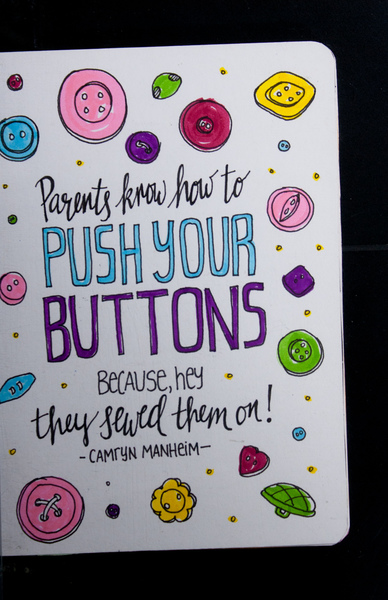 Parents know how to
PUSH YOUR
BUTTONS
BECAUSE, HEY
they sewed them on!
- CAMRYN MANHEIM -